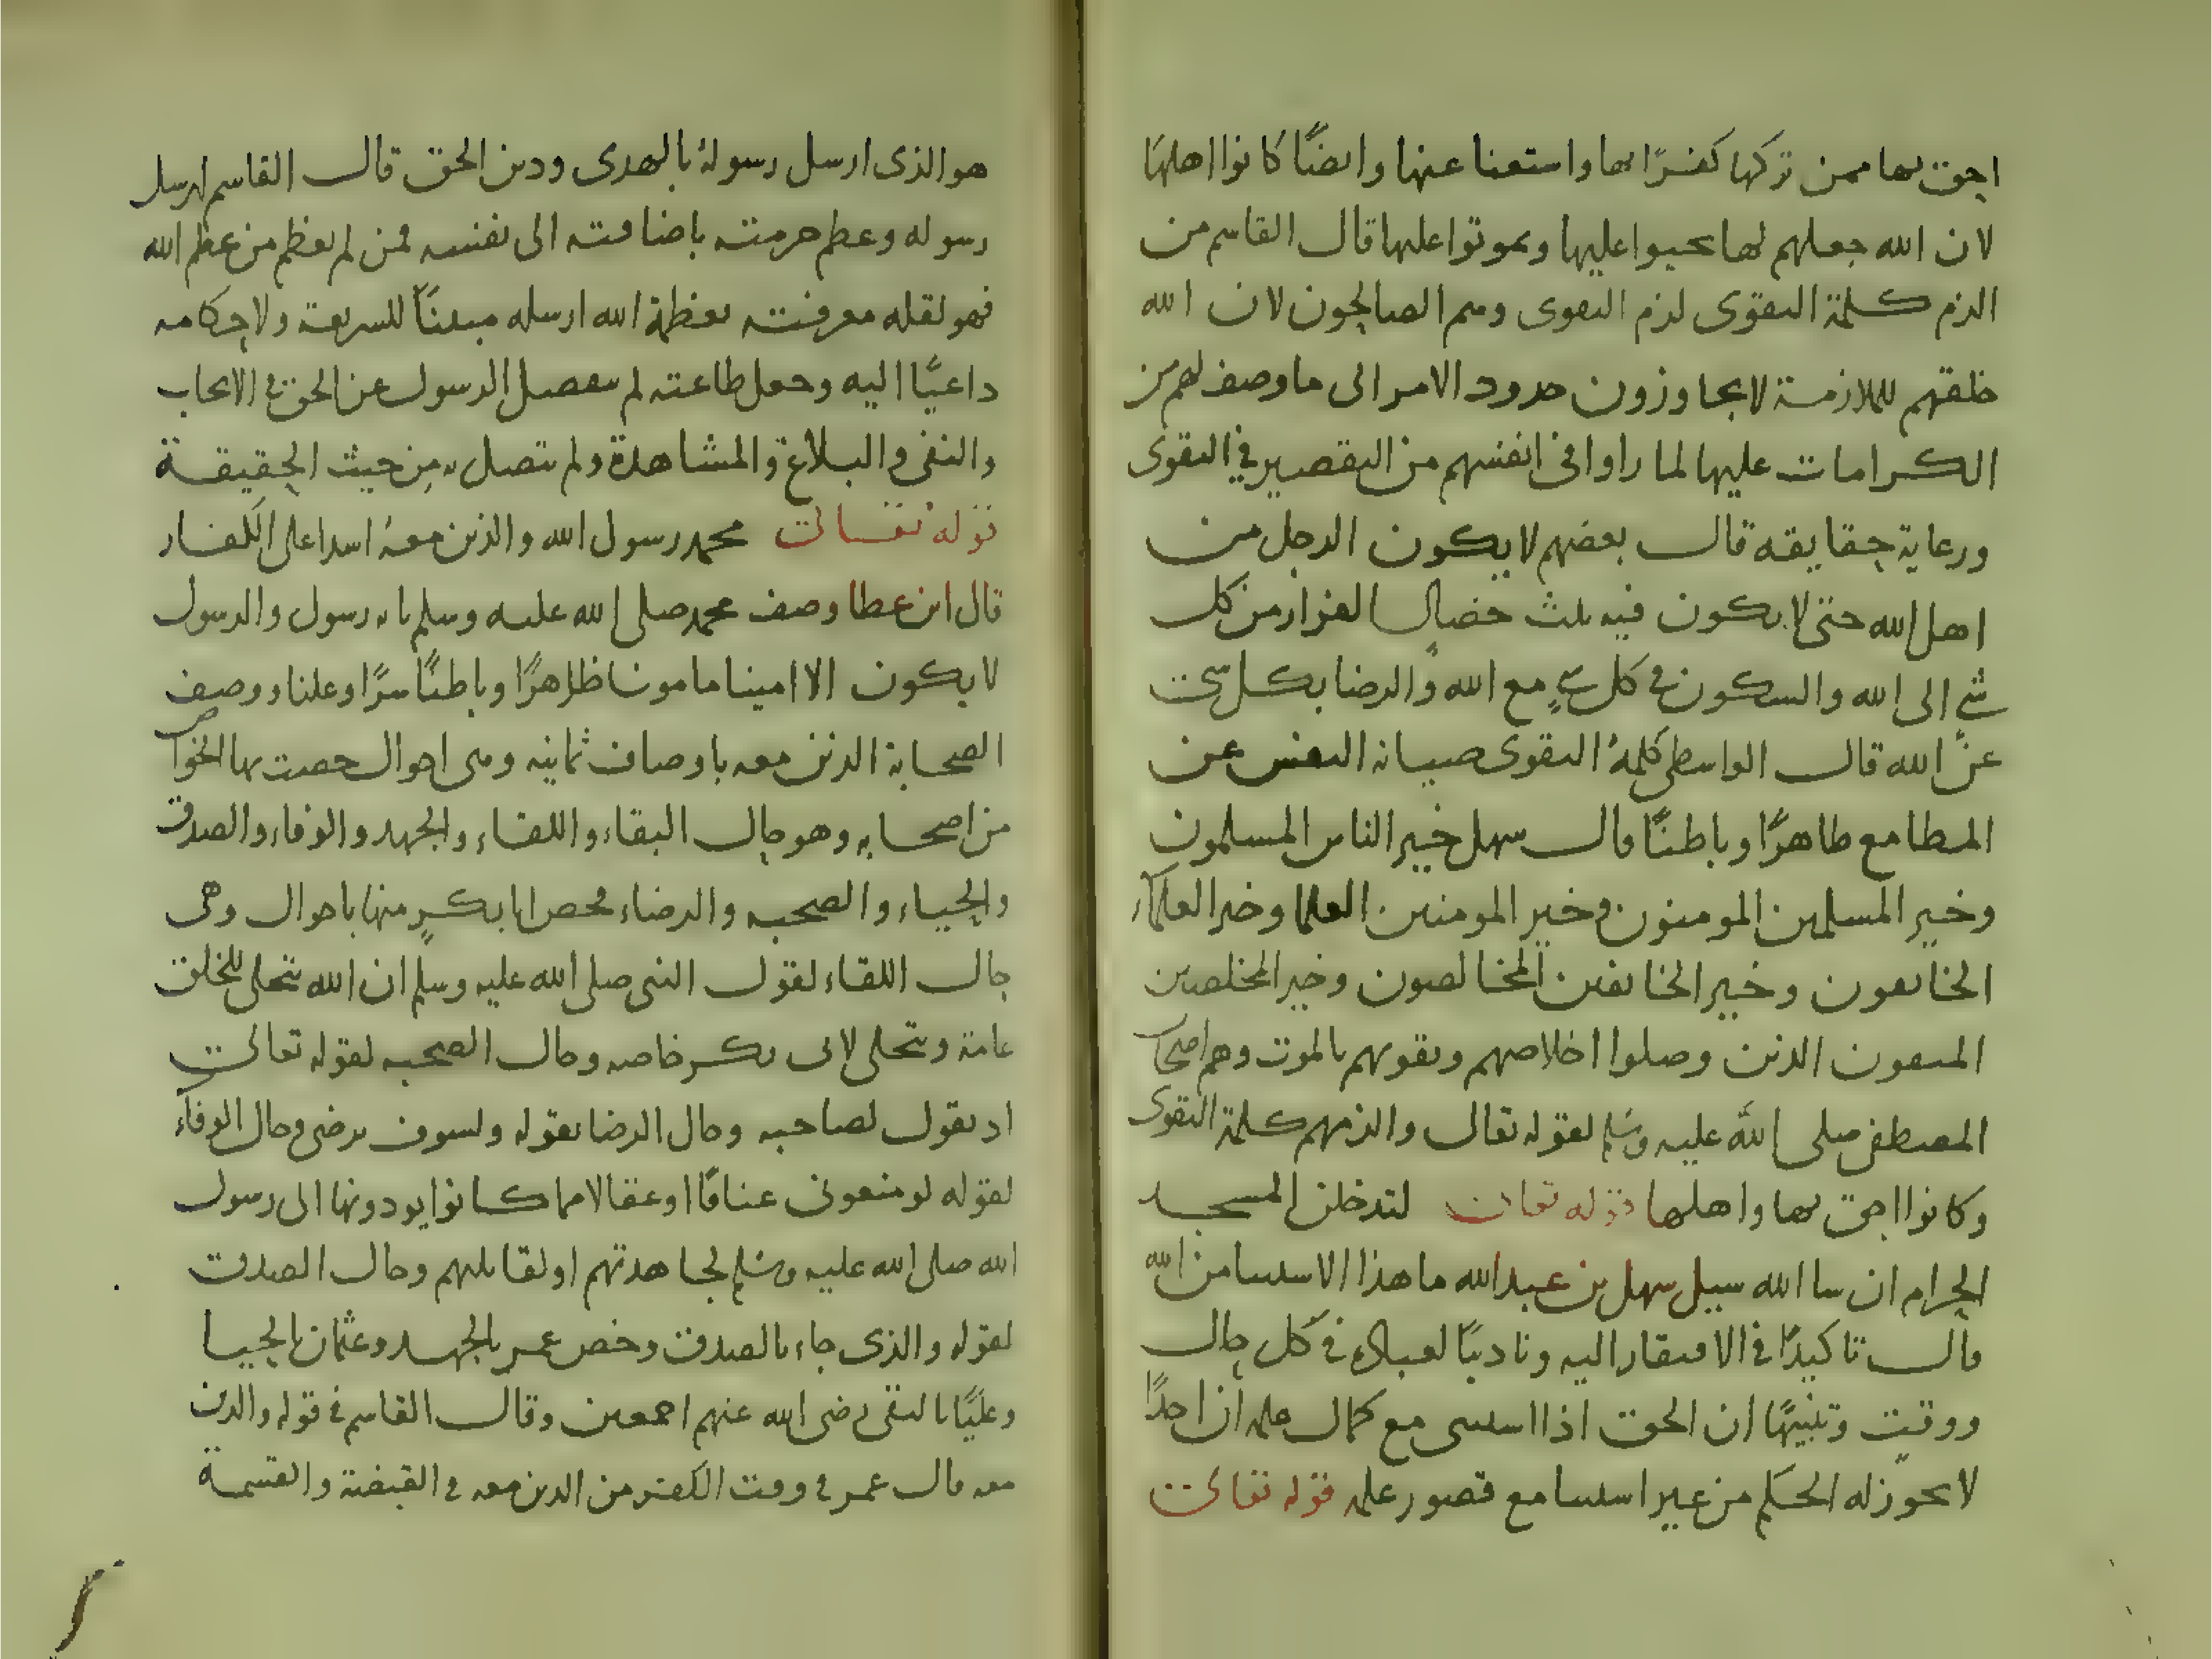 احق بها ممن تركها كفرًا بها واستغنا عنها وايضًا كانوا اهلها
لان الله جعلهم لها يحيوا عليها ويموتوا عليها قال القاسم من
الزم كلمة التقوى لزم التقوى وهم الصالحون لان الله
خلقهم للملازمة لا يجاوزون حدود الامر الى ما وصف لهم من
الكرامات عليها لما راوا في انفسهم من التقصير في التقوى
ورعاية حقايقه قال بعضهم لا يكون الرجل من
اهل الله حتى لا يكون فيه ثلث خصال الفرار من كل
شي الى الله والسكون في كل شي مع الله والرضا بكل شي
عن الله قال الواسطى كلمة التقوى صيانة النفس عن
المطامع ظاهرًا وباطنًا قال سهل خير الناس المسلمون
وخير المسلمين المومنون وخير المومنين العلما وخير العلماء
الخائفون وخير الخائفين المخالصون وخير المخلصين
المتقون الذين وصلوا اخلاصهم وتقويهم بالموت وهم اصحاب
المصطفى صلى الله عليه وسلم لقوله تعالى والزمهم كلمة التقوى
وكانوا احق بها واهلها قوله تعالى لتدخلن المسجد
الحرام ان شا الله سيل سهل بن عبد الله ما هذا الاستثنا من الله
قال تاكيدًا في الافتقار اليه وتاديبًا لعباده في كل حال
ووقت وتنبيهًا ان الحق اذا استثنى مع كمال علمه ان احدًا
لا يجوز له الحكم من غير استثنا مع قصور علمه قوله تعالى
هو الذى ارسل رسوله بالهدى ودين الحق قال القاسم ارسل
رسوله وعظم حرمته باضافته الى نفسه فمن لم يعظم من عظم الله
فهو لقلة معرفته بعظمة الله ارسله مبينًا للشريعة ولاحكامه
داعيًا اليه وجعل طاعته لم ينفصل الرسول عن الحق في الايجاب
والنفى والبلاغ والمشاهدة ولم يتصل به من حيث الحقيقة
قوله تعالى محمد رسول الله والذين معه اشدا على الكفار
قال ابن عطا وصف محمد صلى الله عليه وسلم بانه رسول والرسول
لا يكون الا امينا مامونا ظاهرًا وباطنًا سرًا وعلنا ووصف
الصحابة الذين معه باوصاف ثمانيه وهى احوال خصت بها الخواص
من اصحابه وهو حال البقاء واللقاء والجهد والوفاء والصدق
والحياء والصحبه والرضاء فخص ابا بكر منها باحوال وهى
حال اللقاء لقول النبى صلى الله عليه وسلم ان الله يتجلى للخلق
عامة ويتجلى لابى بكر خاصه وحال الصحبه لقوله تعالى
اذ يقول لصاحبه وحال الرضا بقوله ولسوف يرضى وحال الوفاء
لقوله لو منعونى عناقًا او عقالا مما كانوا يودونها الى رسول
الله صلى الله عليه وسلم لجاهدتهم او لقاتلهم وحال الصدق
لقوله والذى جاء بالصدق وخص عمر بالجهد وعثمان بالحيا
وعليًا بالتقى رضى الله عنهم اجمعين وقال القاسم في قوله والذين
معه قال عمر في وقت الكفر من الذين معه في القبضة والقسمة